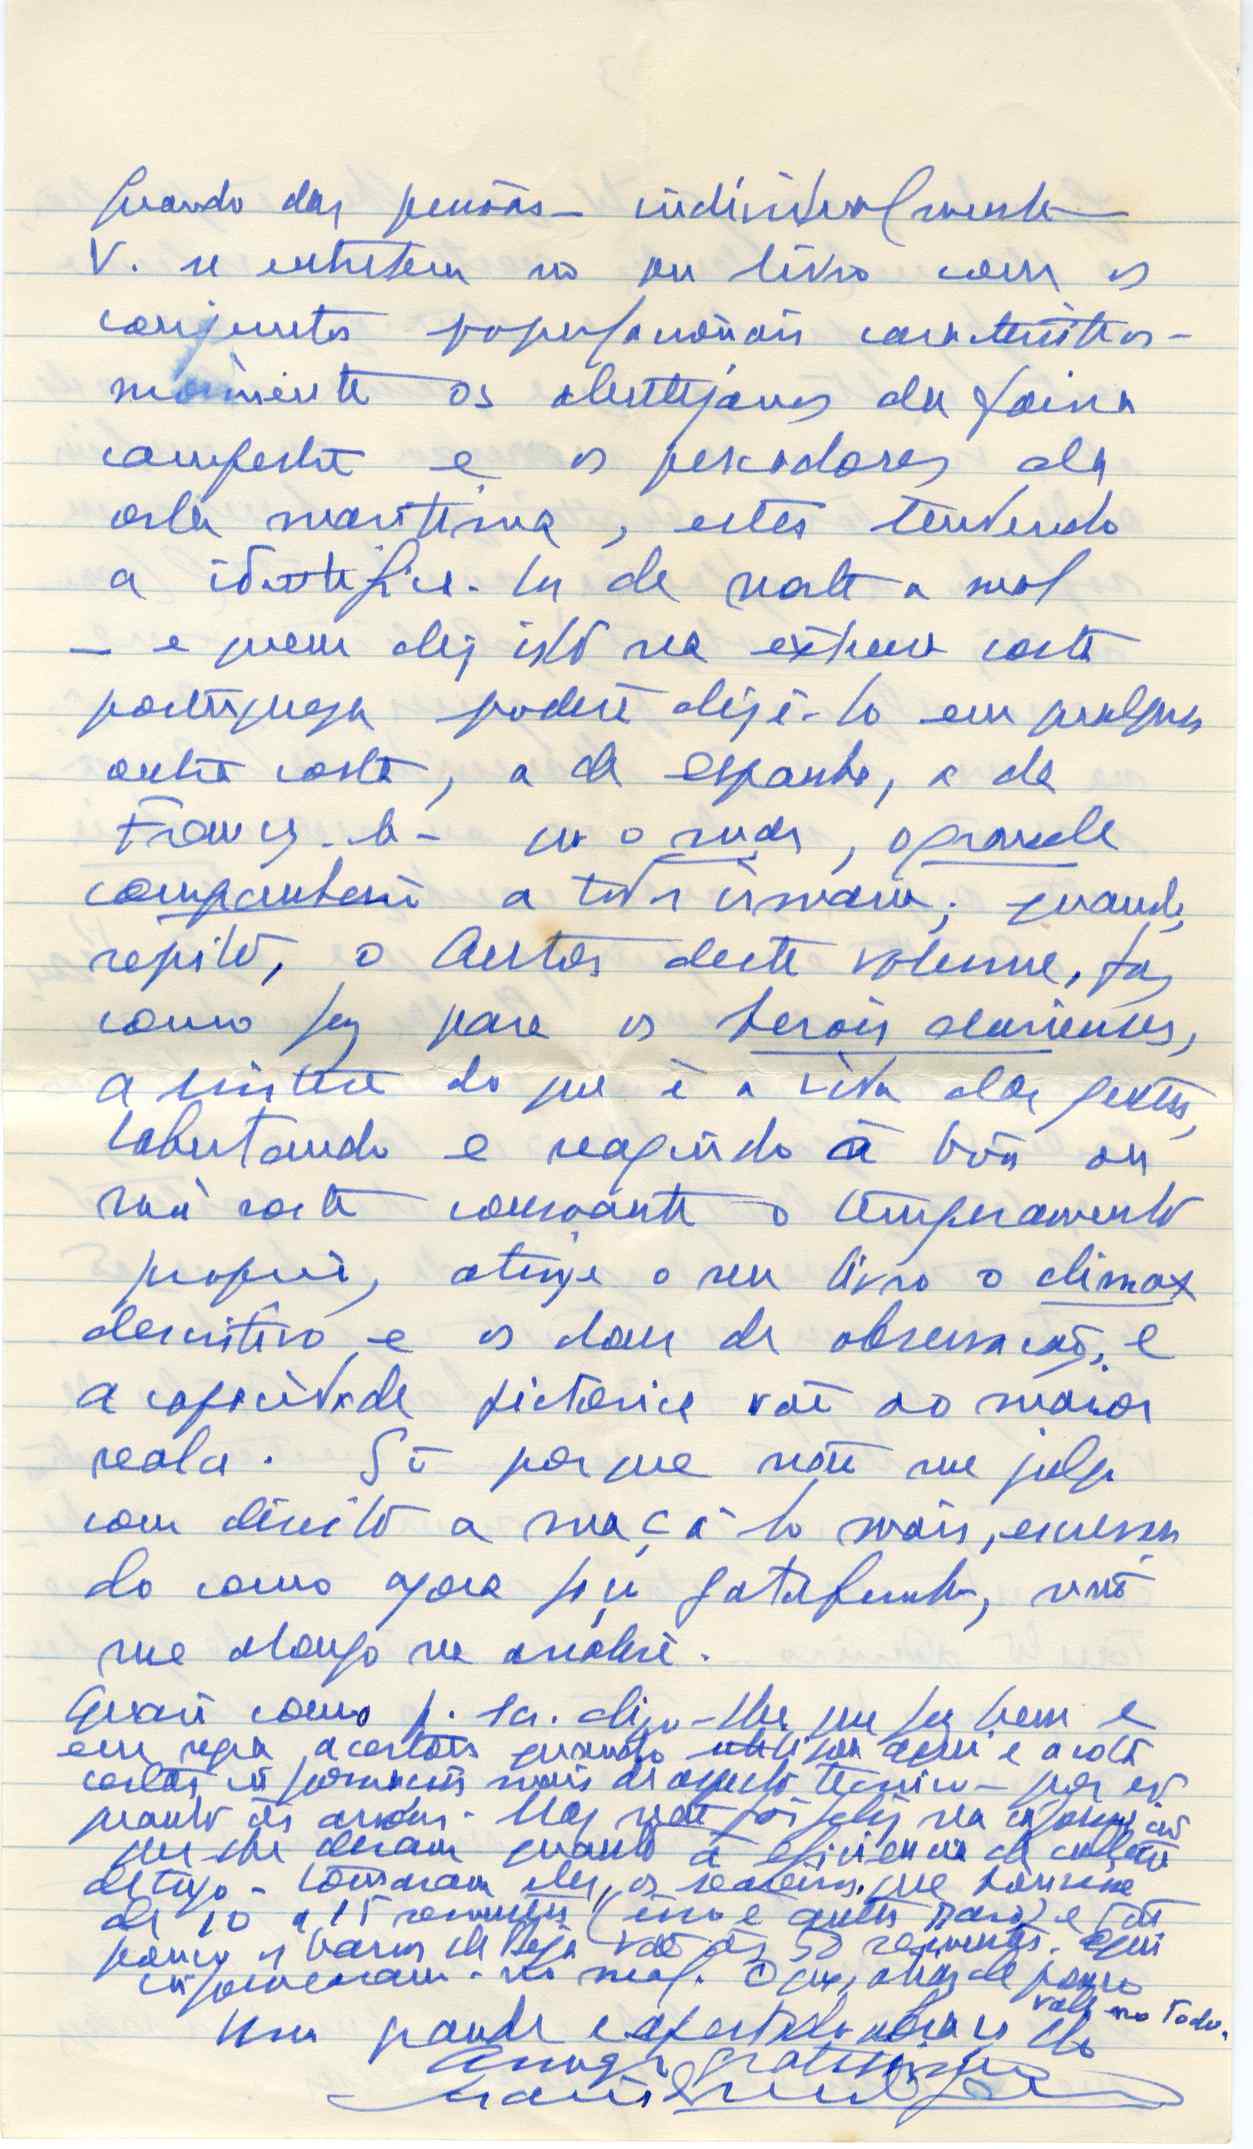 Quando das pessoas - individualmente
V. se entretem no seu livro com os
conjuntos populacionais caracteristicos -
mòrmente os alentejanos da faina
campestre e os pescadores da
orla maritima, estes tendendo
a identifica-la de norte a sul
- e quem diz isto na extrema costa
portugueza poderá dizê-lo em qualquer
outra costa, a da Espanha, a da
França - que o mar, o grande
companheiro a todos irmana; quando,
repito, o Autor deste volume, faz
como fez para os herois durienses,
a sintese do que é a vida das gentes,
labutando e reagindo à bôa ou
má sorte consoante o temperamento
proprio, atinge o seu livro o climax
descritivo e os dons de observação, e
a capacidade pictorica vão ao maior
escala. Só porque não me julgo
com direito a maçá-lo mais, escreven
do como agora faço gatafunhos, não
me alongo na análise.
Quasi como p. sc. digo-lhe que faz bem e
em regra acertou quando utilizou aqui e acolá
certas informações mais de aspecto tecnico - por ex
quanto às redes. Mas não foi feliz na informação
que lhe deram quanto à eficiencia da colheita
de trigo - tomaram eles, os seareiros, que houvesse
de 10 a 15 sementes (isso é antes raro) e tão
pouco os barros de Beja vão às 50 sementes. Aqui
informaram-no mal. O que, aliás de pouco
vale no todo.
Um grande e afectuoso abraço do
Amigo gratissimo